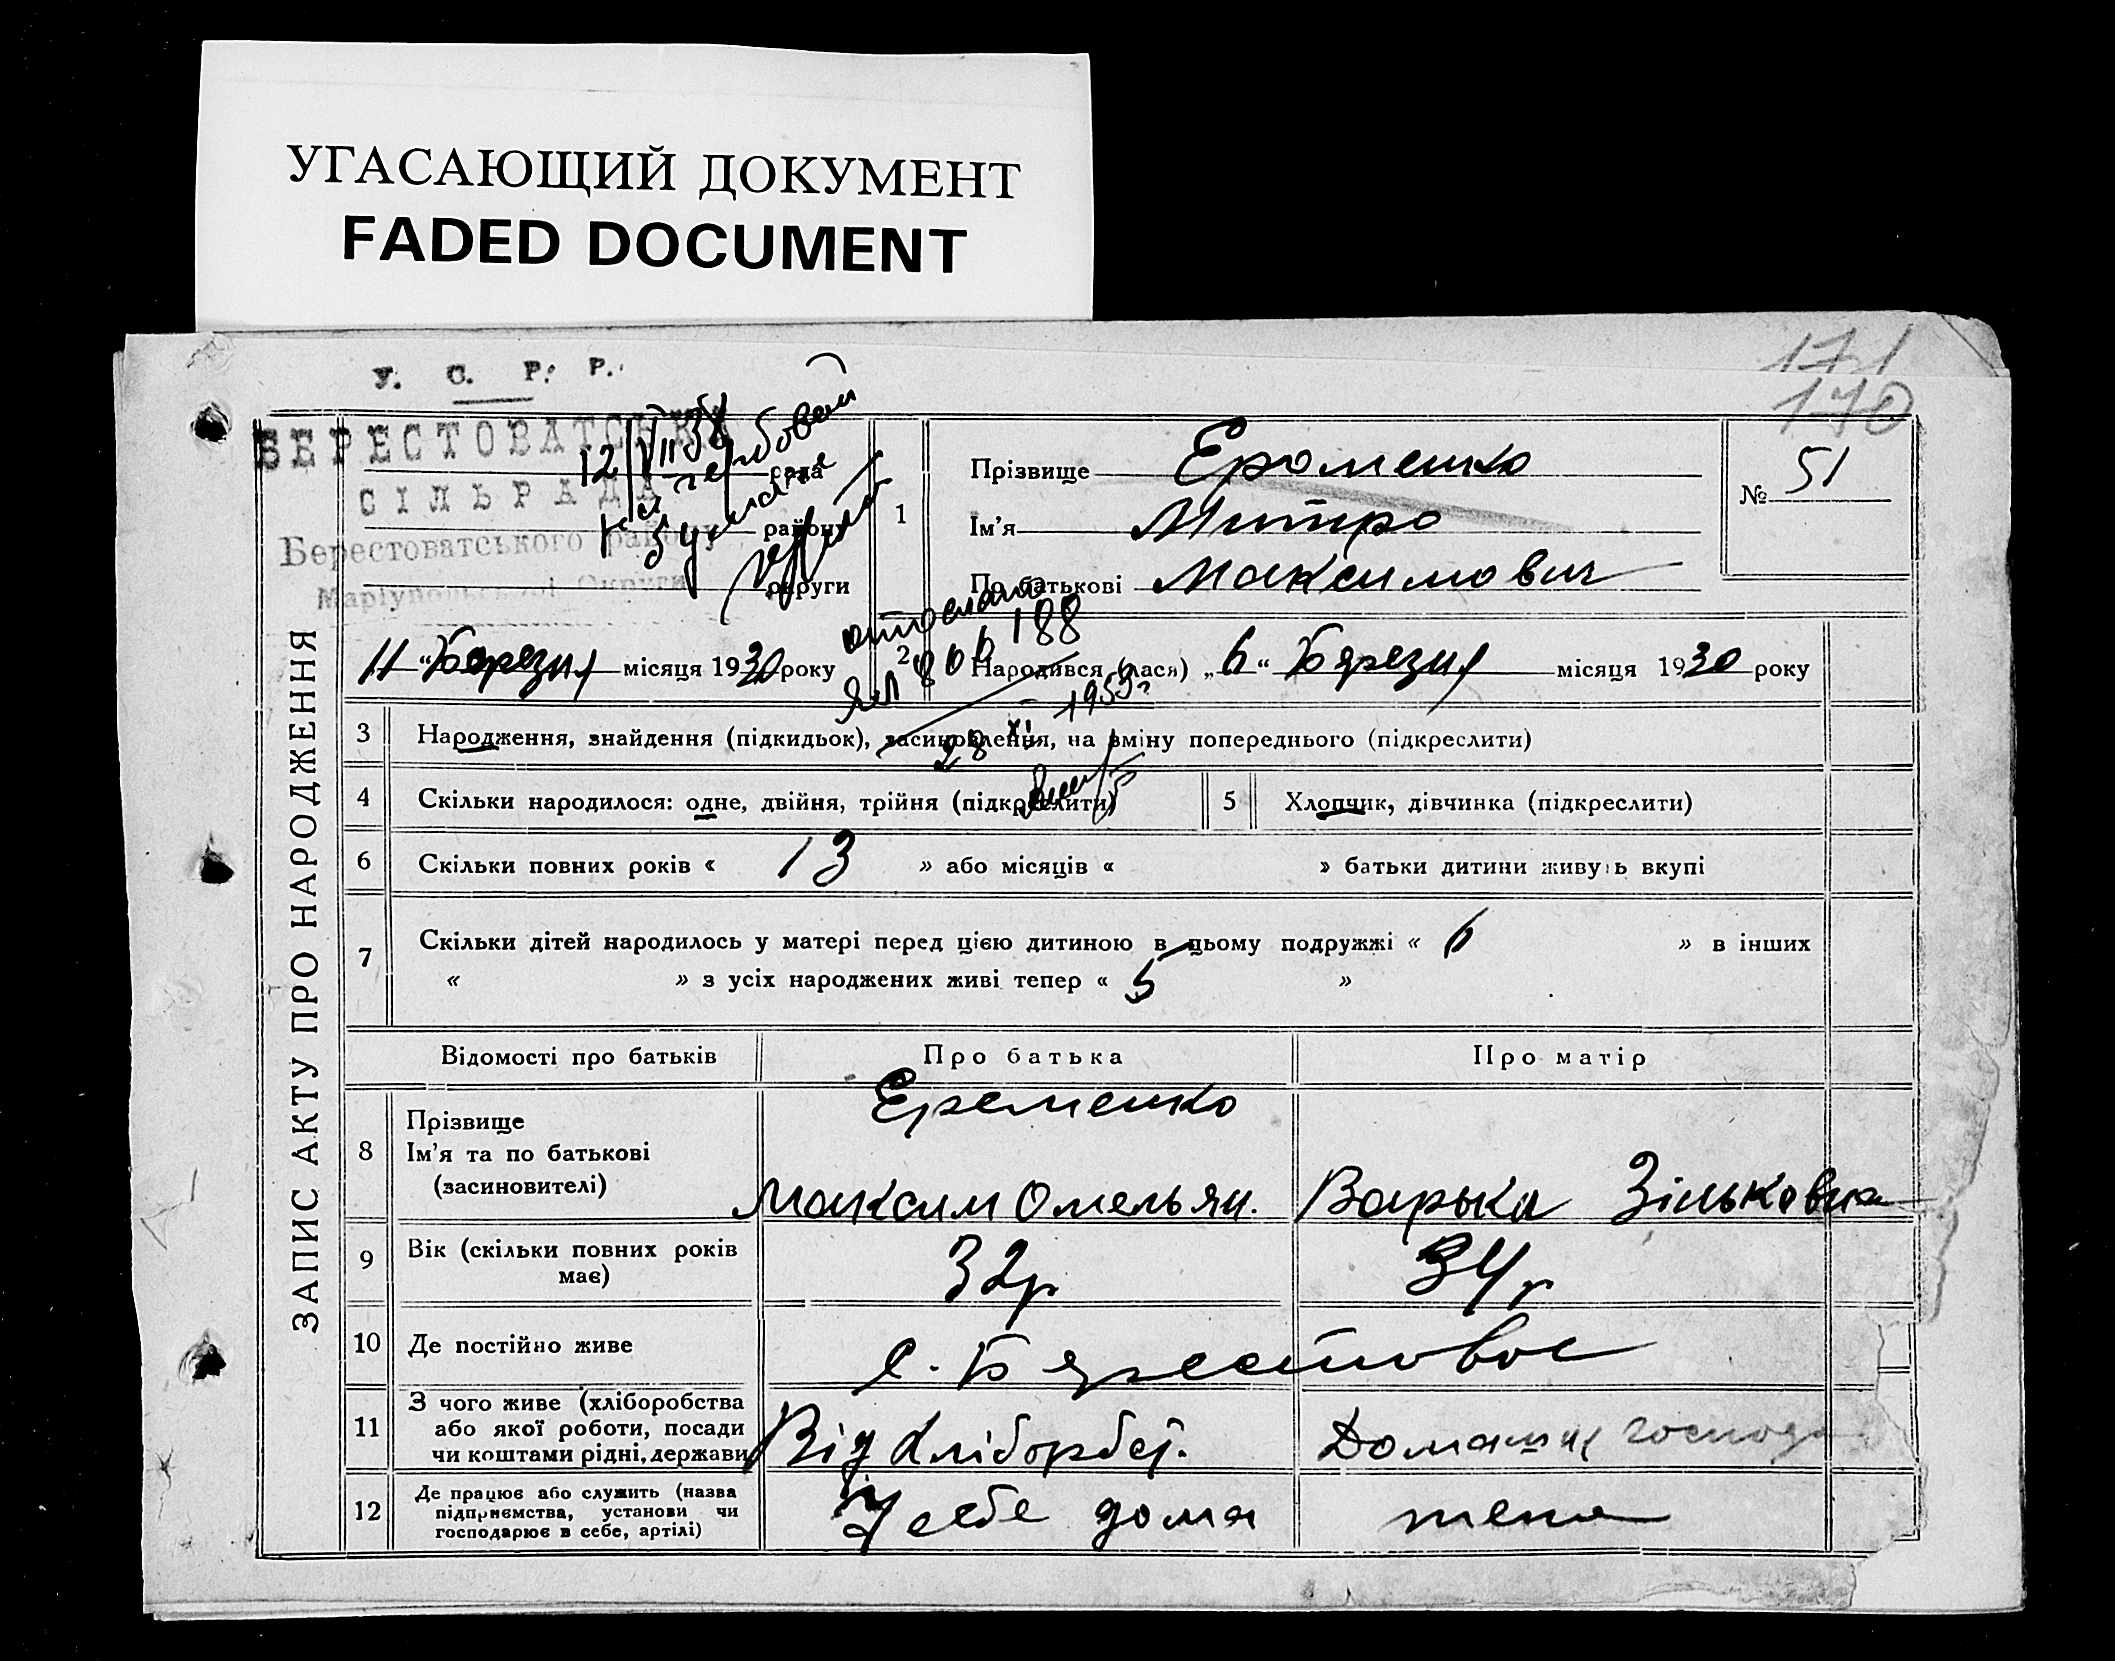 УГАСАЮЩИЙ ДОКУМЕНТ
FADED DOCUMENT
171
170
У. С. Р. Р.
БЕРЕСТОВАТСЬКА
рада
СІЛЬРАДА
району
Берестоватського району
округи
Маріупольської Округи
12/VII 38
1
Прізвище Ероменко
Ім'я Митро
По батькові Максимович
№ 51
ЗАПИС АКТУ ПРО НАРОДЖЕННЯ
11 "Березня місяця 1930 року
2 Народився (лася) „6" Березня місяця 1930 року
ЯП 806188
28 XI 1953г
3 Народження, знайдення (підкидьок), засиновлення, на зміну попереднього (підкреслити)
4 Скільки народилося: одне, двійня, трійня (підкреслити)
5 Хлопчик, дівчинка (підкреслити)
6 Скільки повних років « 13 » або місяців « » батьки дитини живуть вкупі
7 Скільки дітей народилось у матері перед цією дитиною в цьому подружжі « 6 » в інших
« » з усіх народжених живі тепер « 5 »
Відомості про батьків Про батька Про матір
8 Прізвище
Ім'я та по батькові
(засиновителі)
Еременко
Максим Омельян. Варька Зіньковна
9 Вік (скільки повних років
має)
32р 34р
10 Де постійно живе с. Берестовое
11 З чого живе (хліборобства
або якої роботи, посади
чи коштами рідні, держави
Від хліборбст. Домашня господ
12 Де працює або служить (назва
підприємства, установи чи
господарює в себе, артілі)
У себе дома тепа